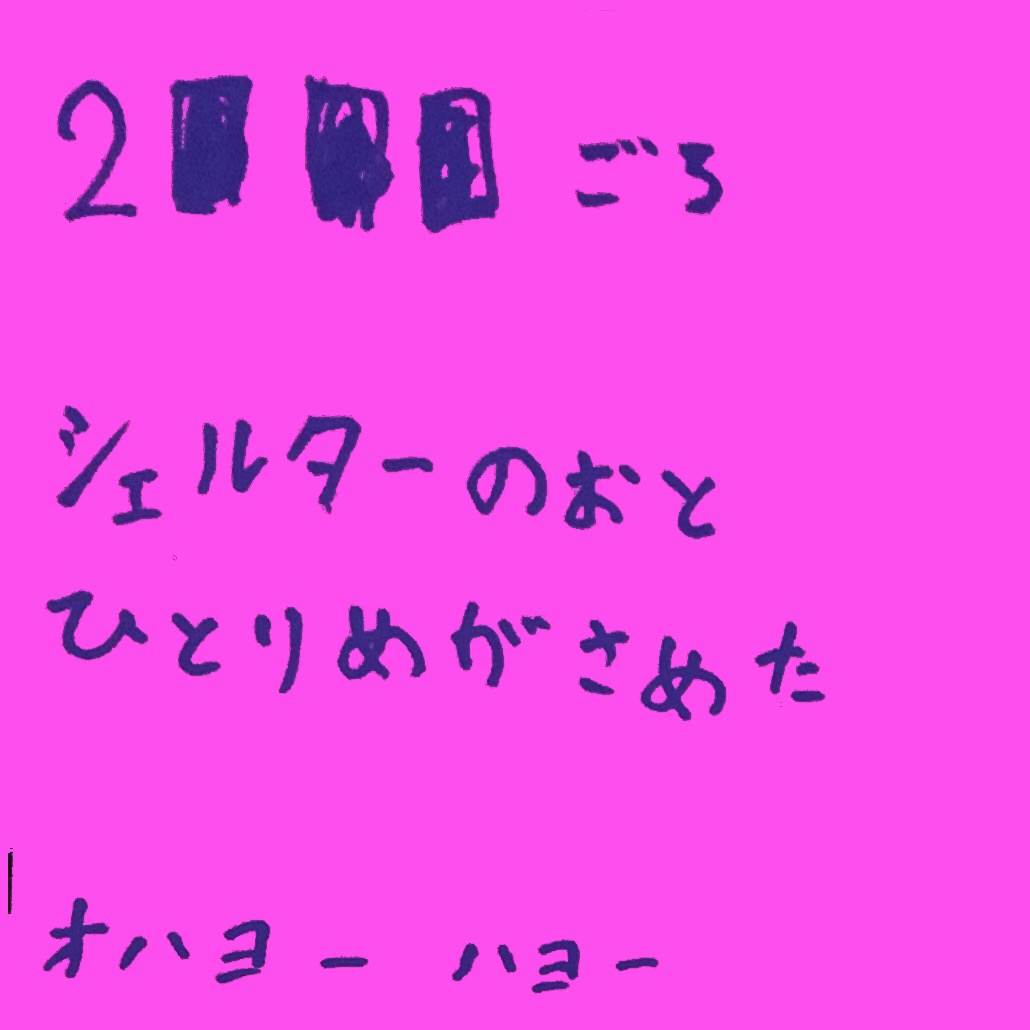 2■■■ ごろ
シェルターのおと
ひとりめがさめた
オハヨー ハヨー